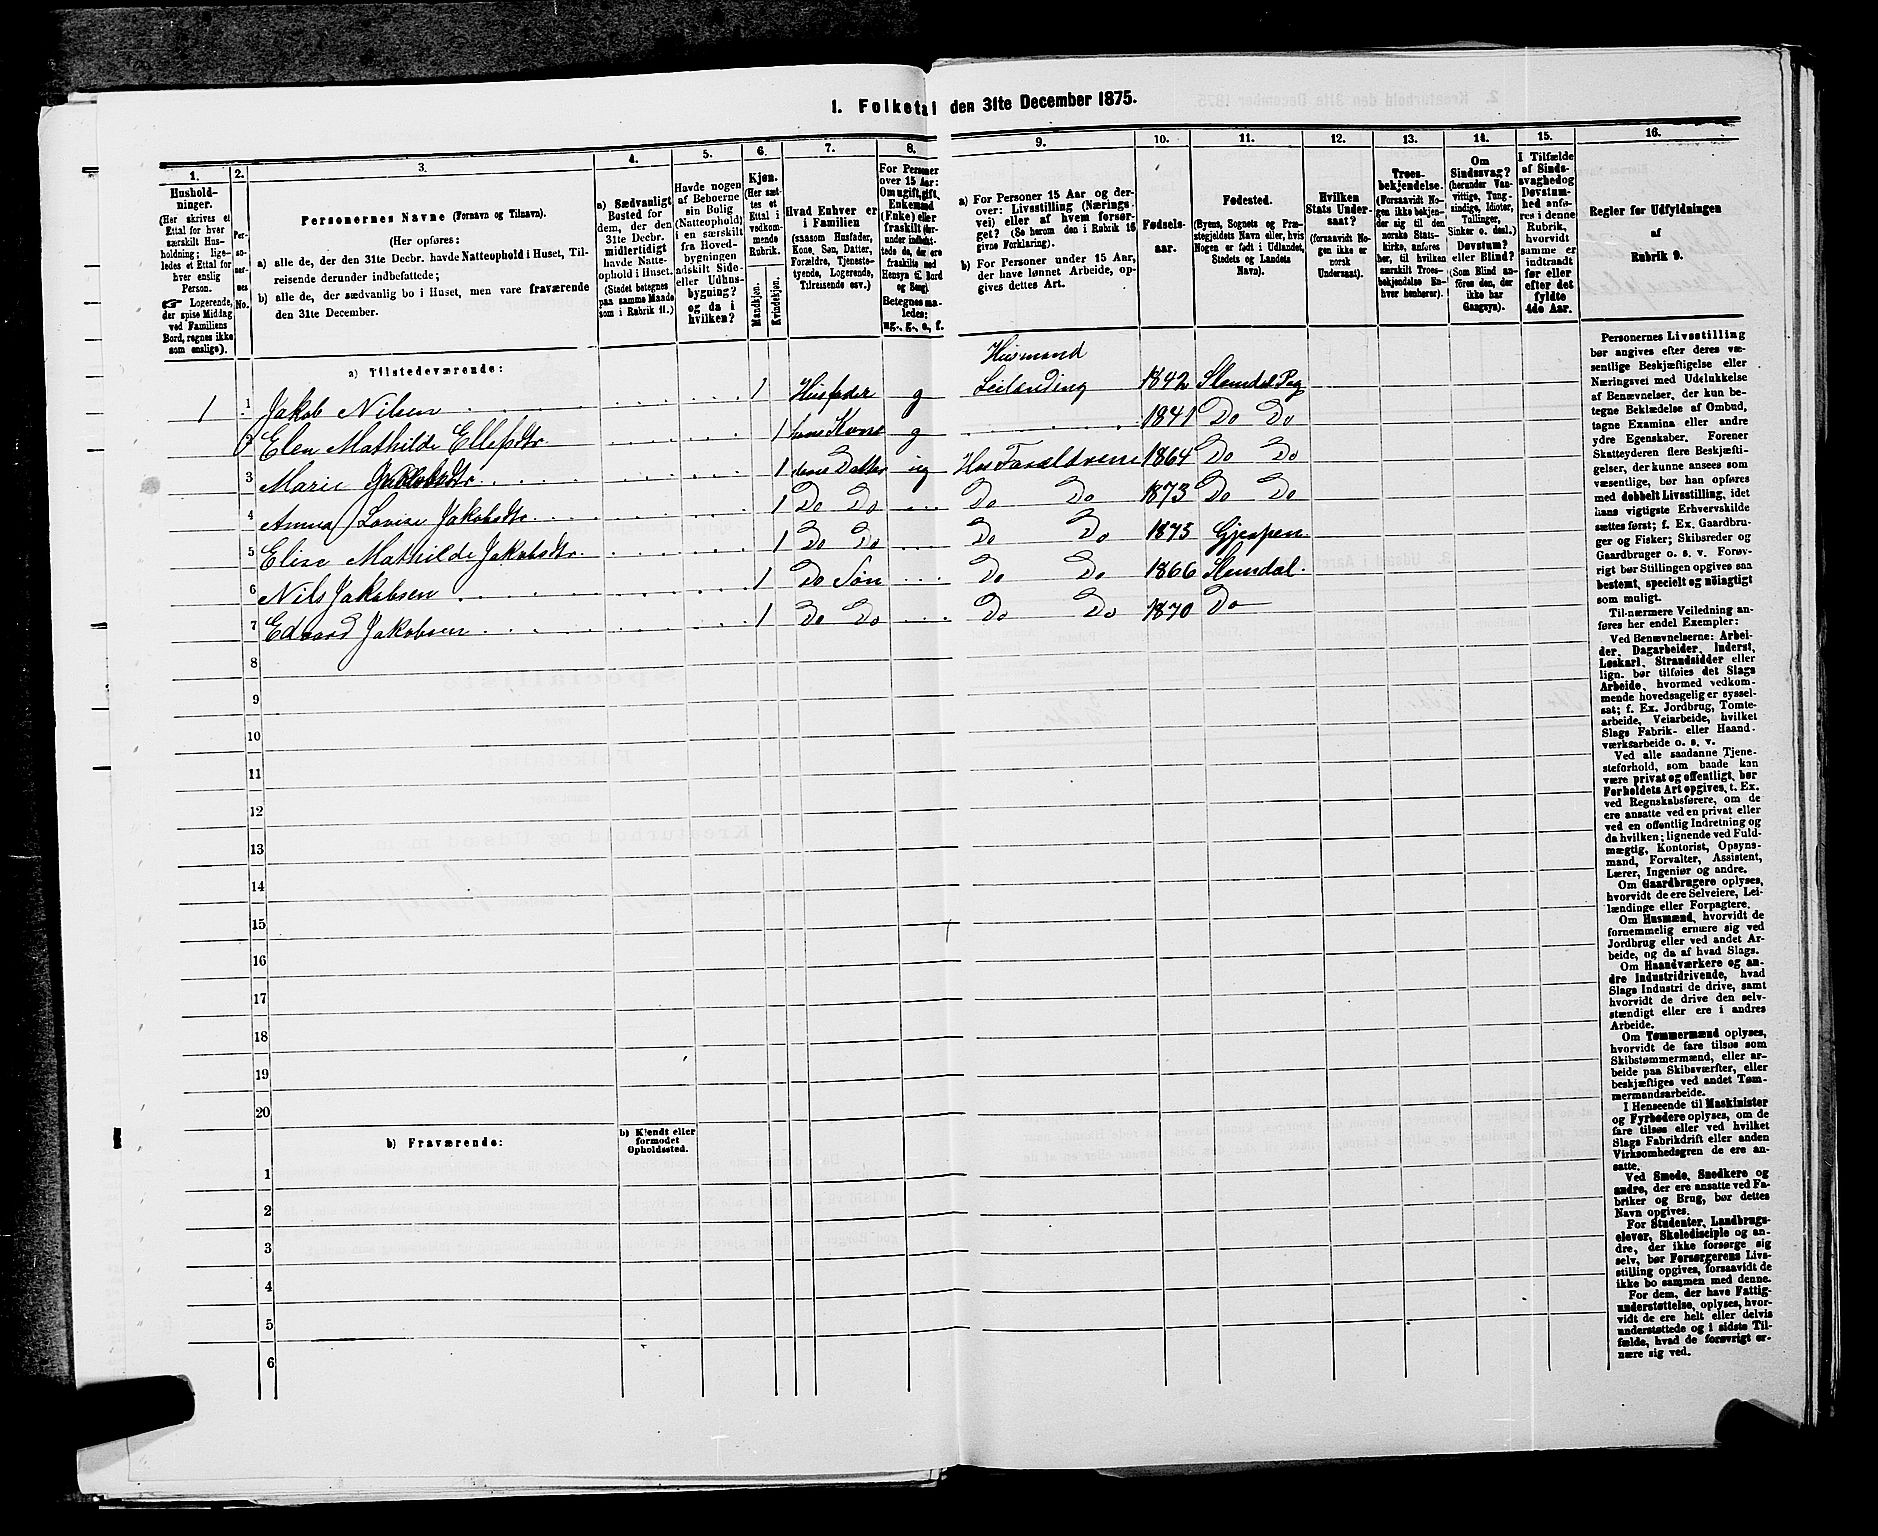 1. Folketal den 31te December 1875.
1.
Hushold-
ninger.
(Her skrives et
Ettal for hver
særskilt Hus-
holdning; lige-
ledes et Ettal for
hver enslig
Person.
☛ Logerende,
der spise Middag
ved Familiens
Bord, regnes ikke
som enslige).
2.
Per-
so-
ner-
nes
No.
3.
Personernes Navne (Fornavn og Tilnavn).
(Her opføres:
a) alle de, der den 31te Decbr. havde Natteophold i Huset, Til-
reisende derunder indbefattede;
b) alle de, der sædvanlig bo i Huset, men vare fraværende
den 31te December.
4.
a) Sædvanligt
Bosted for
dem, der den
31te Decbr.
midlertidigt
havde Natte-
ophold i Huset.
(Stedet betegnes
paa samme Maade
som i Rubrik 11.)
5.
Havde nogen
af Beboerne
sin Bolig
(Natteophold)
i en særskilt
fra Hoved-
bygningen
adskilt Side-
eller Udhus-
bygning?
og da i
hvilken?
6.
Kjøn.
(Her sæt-
tes et
Ettal i
vedkom-
mende
Rubrik.
Mandkjøn.
Kvindekjøn.
7.
Hvad Enhver er
i Familien
(saasom Husfader,
Kone, Søn, Datter,
Forældre, Tjeneste-
tyende, Logerende,
Tilreisende osv.)
8.
For Personer
over 15 Aar:
Om ugift, gift,
Enkemand
(Enke) eller
fraskilt (her-
under indbefat-
tede de, der ere
fraskilte med
Hensyn til Bord
og Seng).
Betegnes saa-
ledes:
ug., g., e., f.
9.
a) For Personer 15 Aar og der-
over: Livsstilling (Nærings-
vei) eller af hvem forsør-
get? (Se herom den i Rubrik 16
givne Forklaring).
b) For Personer under 15 Aar,
der have lønnet Arbeide, op-
gives dettes Art.
10.
Fødsels-
aar.
11.
Fødested.
(Byens, Sognets og Præ-
stegjeldets Navn eller, hvis
Nogen er født i Udlandet,
Stedets og Landets
Navn).
12.
Hvilken
Stats Under-
saat?
(forsaavidt No-
gen ikke er
norsk
Undersaat).
13.
Troes-
bekjendelse.
(Forsaavidt No-
gen ikke bekjen-
der sig til den
norske Stats-
kirke, anføres
her, til hvilken
særskilt Troes-
bekjendelse En-
hver henhører).
14.
Om
Sindssvag?
(herunder Van-
vittige, Tung-
sindige, Idioter,
Tullinger,
Sinker o. desl.)
Døvstum?
eller Blind?
(Som Blind an-
føres den, der
ikke har
Gangsyn).
15.
I Tilfælde
af Sinds-
svaghed og
Døvstum-
hed anfø-
res i denne
Rubrik,
hvorvidt
samme er
indtraadt
før eller
efter det
fyldte
4de Aar.
16.
Regler for Udfyldningen
af
Rubrik 9.
a) Tilstedeværende:
Husmand
1 1 Jakob Nilsen 1 Husfader g Leilending 1842 Slemdal Pg
2 Elen Mathilde Ellefsdtr 1 hans Kone g 1841 Do Do
3 Marie Jakobsdtr. 1 deres Datter ug Hos Forældrene 1864 Do Do
4 Anna Lovise Jakobsdtr. 1 Do Do Do Do 1873 Do Do
5 Elise Mathilde Jakobsdtr. 1 Do Do Do Do 1875 Gjerpen
6 Nils Jakobsen 1 Do Søn Do Do 1866 Slemdal.
7 Edvard Jakobsen 1 Do Do Do Do 1870 Do
8
9
10
11
12
13
14
15
16
17
18
19
20
b) Fraværende:
b) Kjendt eller
formodet
Opholdssted.
1
2
3
4
5
6
Personernes Livsstilling
bør angives efter deres væ-
sentlige Beskjæftigelse eller
Næringsvei med Udelukkelse
af Benævnelser, der kun be-
tegne Beklædelse af Ombud,
tagne Examina eller andre
ydre Egenskaber. Forener
Skatteyderen flere Beskjæfti-
gelser, der kunne ansees som
væsentlige, bør han opføres
med dobbelt Livsstilling, idet
hans vigtigste Erhvervskilde
sættes først; f. Ex. Gaardbru-
ger og Fisker; Skibsreder og
Gaardbruger o. s. v. Forøv-
rigt bør Stillingen opgives saa
bestemt, specielt og nøiagtigt
som muligt.
Til nærmere Veiledning an-
føres her endel Exempler:
Ved Benævnelserne: Arbei-
der, Dagarbeider, Inderst,
Løskarl, Strandsidder eller
lign. bør tilføies det Slags
Arbeide, hvormed vedkom-
mende hovedsagelig er syssel-
sat; f. Ex. Jordbrug, Tomte-
arbeide, Veiarbeide, hvilket
Slags Fabrik- eller Haand-
værksarbeide o. s. v.
Ved alle saadanne Tjene-
steforhold, som baade kan
være privat og offentligt, bør
Forholdets Art opgives, t. Ex.
ved Regnskabsførere, om de
ere ansatte ved en privat eller
ved en offentlig Indretning og
da hvilken; lignende ved Fuld-
mægtig, Kontorist, Opsyns-
mand, Forvalter, Assistent,
Lærer, Ingeniør og andre.
Om Gaardbrugere oplyses,
hvorvidt de ere Selveiere, Lei-
lændinge eller Forpagtere.
Om Husmænd, hvorvidt de
fornemmelig ernære sig ved
Jordbrug eller ved andet Ar-
beide, og da af hvad Slags.
Om Haandværkere og an-
dre Industridrivende, hvad
Slags Industri de drive, samt
hvorvidt de drive den selv-
stændigt eller ere i andres
Arbeide.
Om Tømmermænd oplyses,
hvorvidt de fare tilsøs som
Skibstømmermænd, eller ar-
beide paa Skibsværfter, eller
beskjæftiges ved andet Tøm-
mermandsarbeide.
I Henseende til Maskinister
og Fyrbødere oplyses, om de
fare tilsøs eller ved hvilket
Slags Fabrikdrift eller anden
Virksomhedsgren de ere an-
satte.
Ved Smede, Snedkere og
andre, der ere ansatte ved Fa-
briker og Brug, bør dettes
Navn opgives.
For Studenter, Landbrugs-
elever, Skoledisciple og an-
dre, der ikke forsørge sig
selv, bør Forsørgerens Livs-
stilling opgives, forsaavidt de
ikke bo sammen med denne.
For dem, der have Fattig-
understøttelse, oplyses, hvor-
vidt de ere helt eller delvis
understøttede og i sidste Til-
fælde, hvad de forøvrigt er-
nære sig ved.